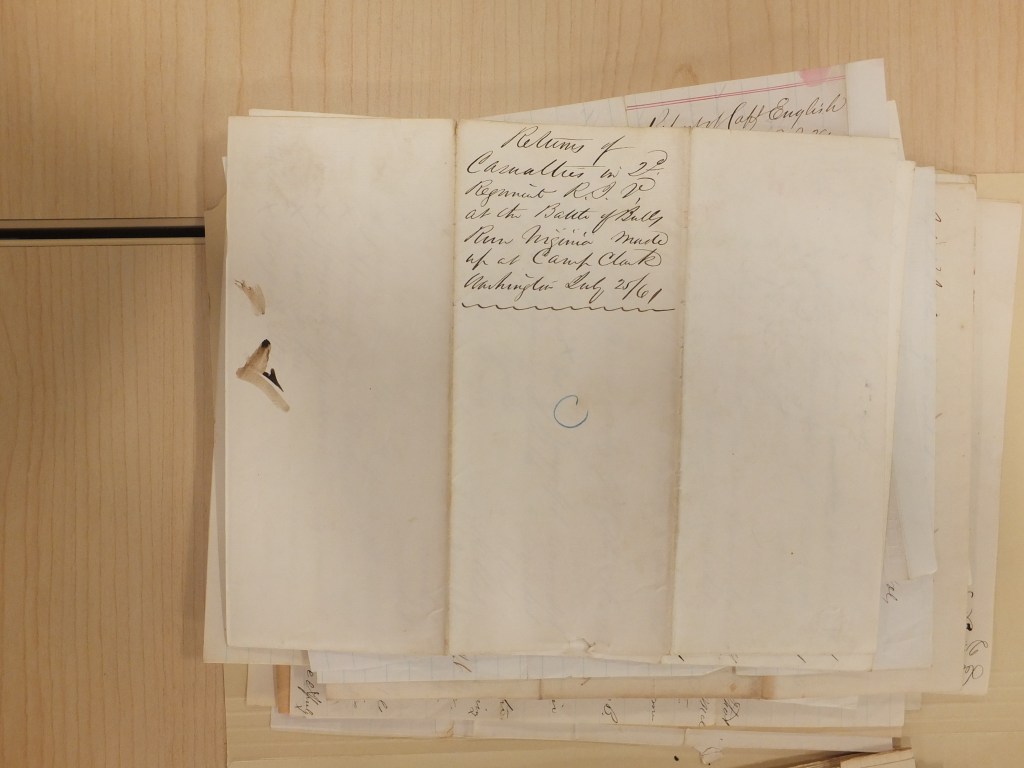 Returns of
Casualties in 2d
Regiment R. I. V.
at the Battle of Bulls
Run Virginia made
up at Camp Clark
Washington July 25/61
C
Capt English